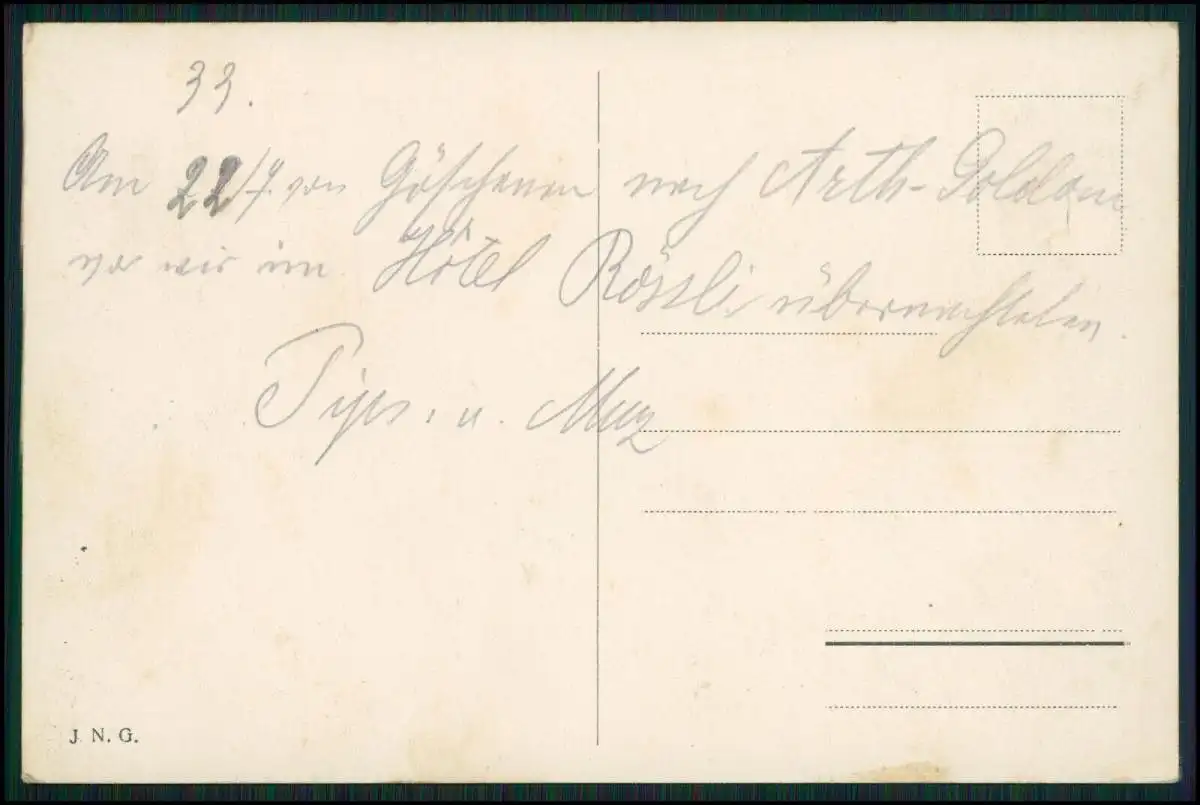 33.
Am 22/7. von Göschenen nach Arth-Goldau
wo wir im Hôtel Rössli übernachteten.
Pips. u. Muz
J. N. G.